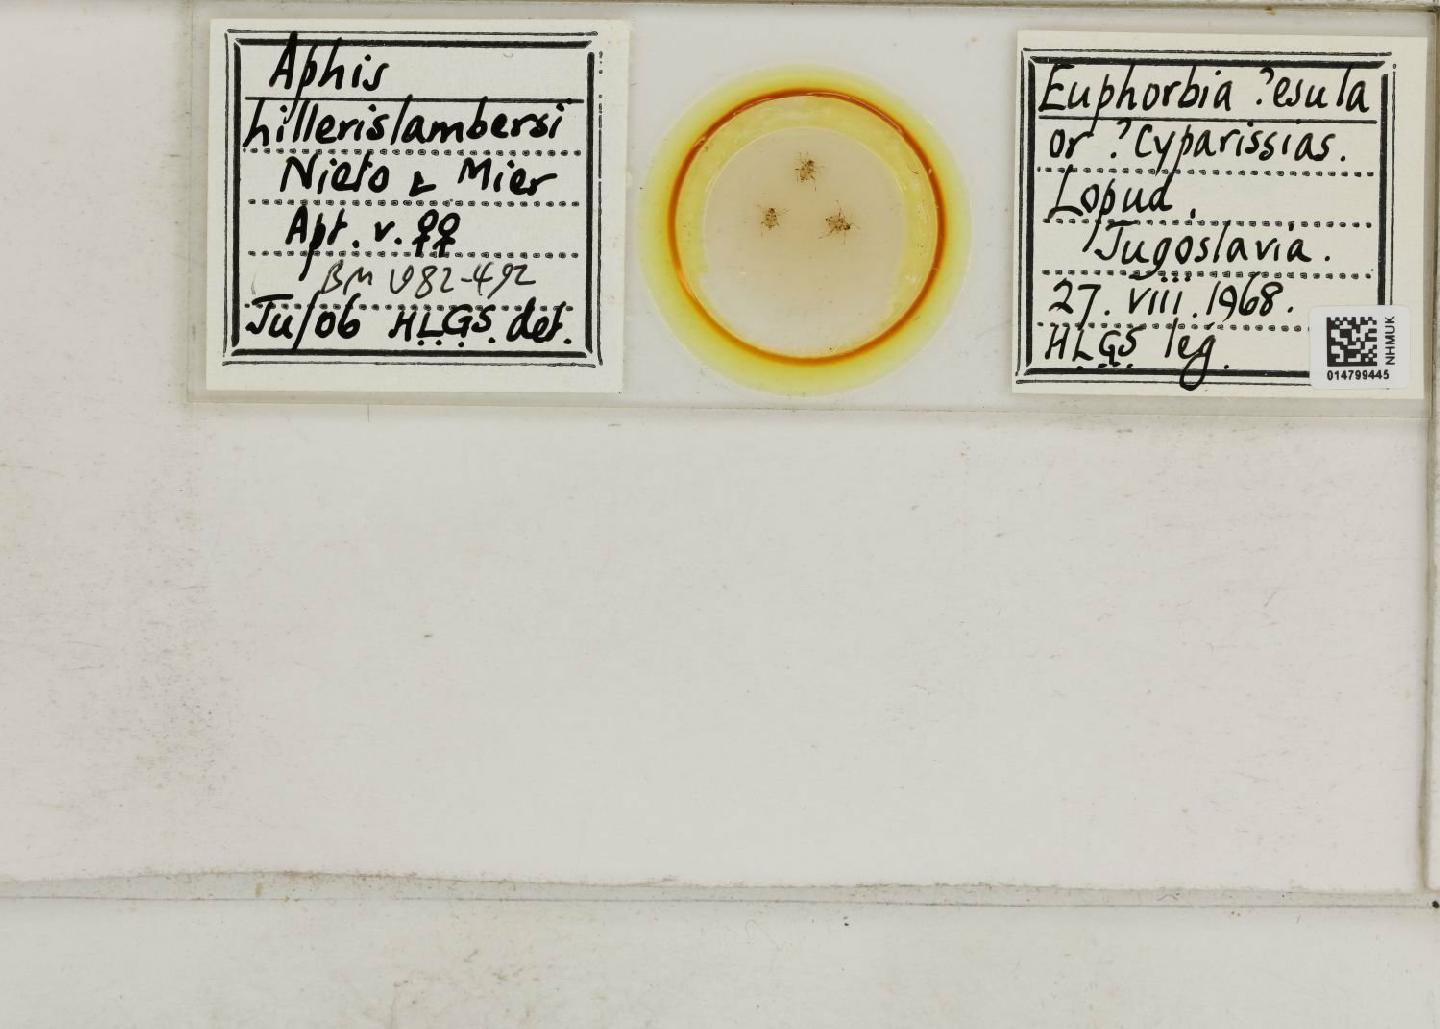 Aphis
hillerislambersi
Nieto & Mier
Apt. v. ♀♀
BM 1982-492
Ju/06 HLGS. det.
Euphorbia ?esula
or ?Cyparissias.
Lopud,
Jugoslavia.
27. viii. 1968.
HLGS leg.
NHMUK
014799445